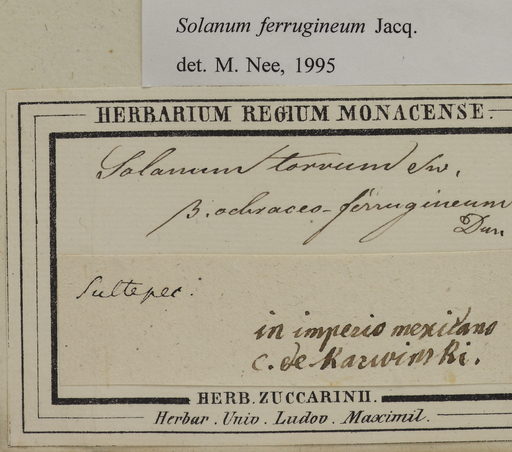 Solanum ferrugineum Jacq.
det. M. Nee, 1995
HERBARIUM REGIUM MONACENSE.
Solanum torvum Sw.
β. ochraceo-ferrugineum
Dun.
Sultepec.
in imperio mexicano
C. de Karwinski.
HERB. ZUCCARINII.
Herbar. Univ. Ludov. Maximil.